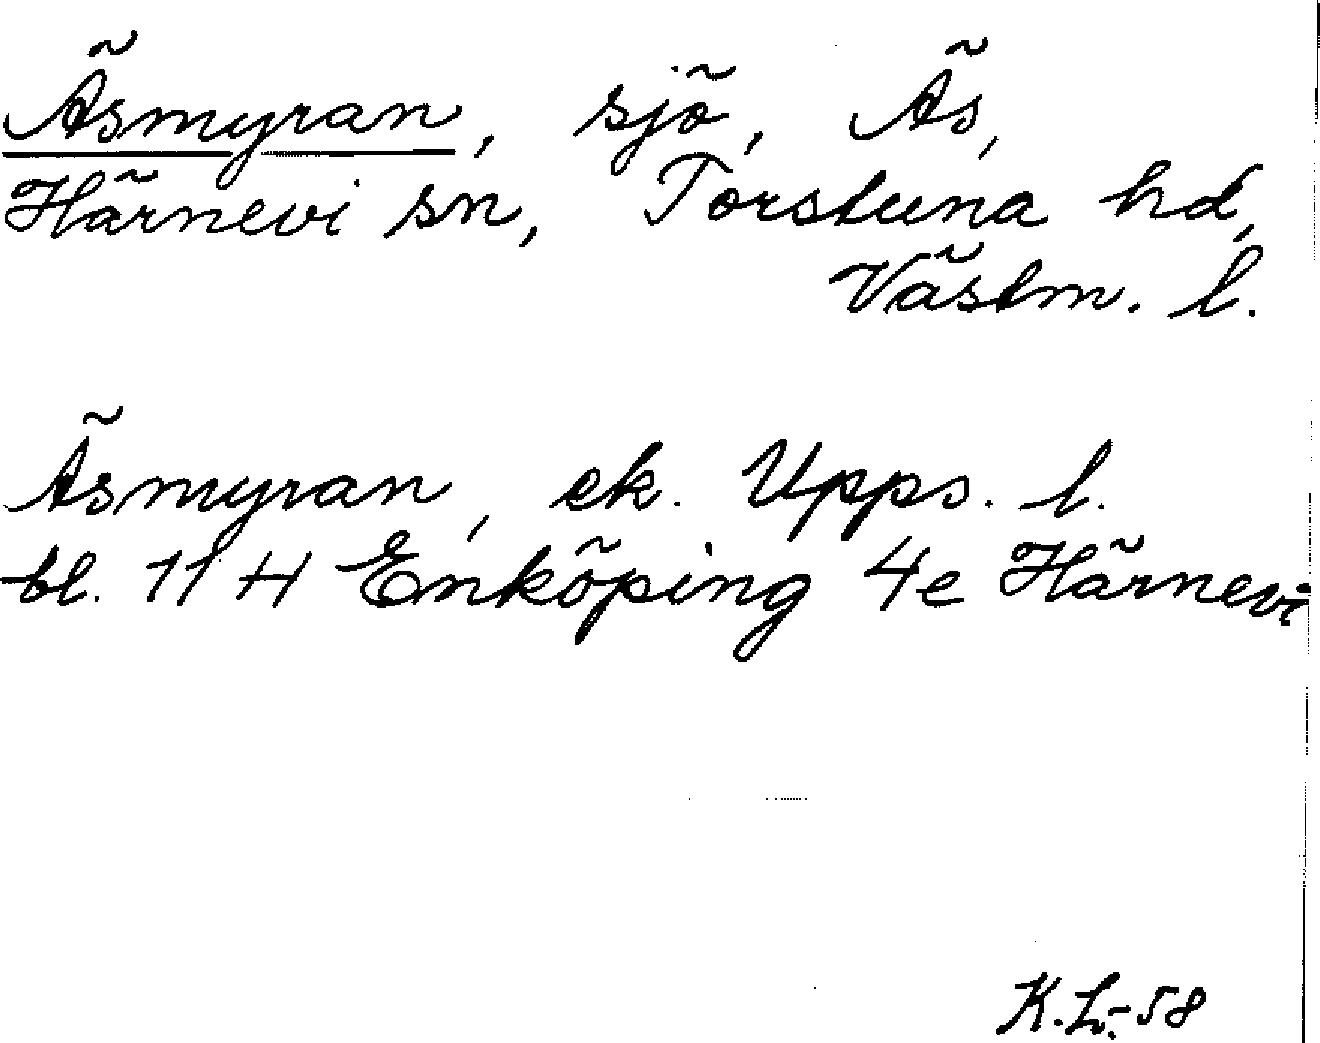 Äsmyran, sjö, Äs,
Härnevi sn, Torstuna hd,
Västm. l.
Äsmyran, ek. Upps. l.
bl. 11 H Enköping 4e Härnevi
K.L.-58